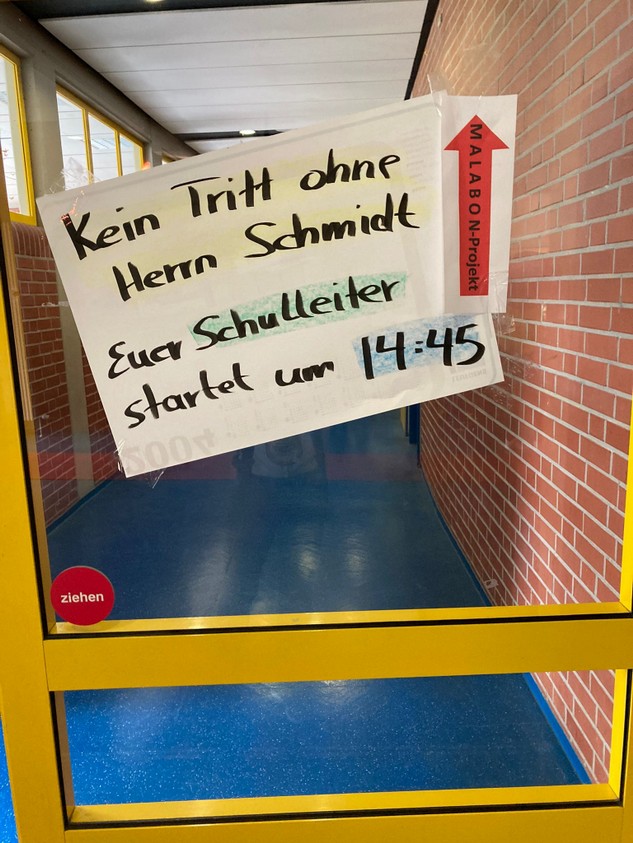 Kein Tritt ohne
Herrn Schmidt
Euer Schulleiter
startet um 14:45
MALABON-Projekt
2004
ziehen